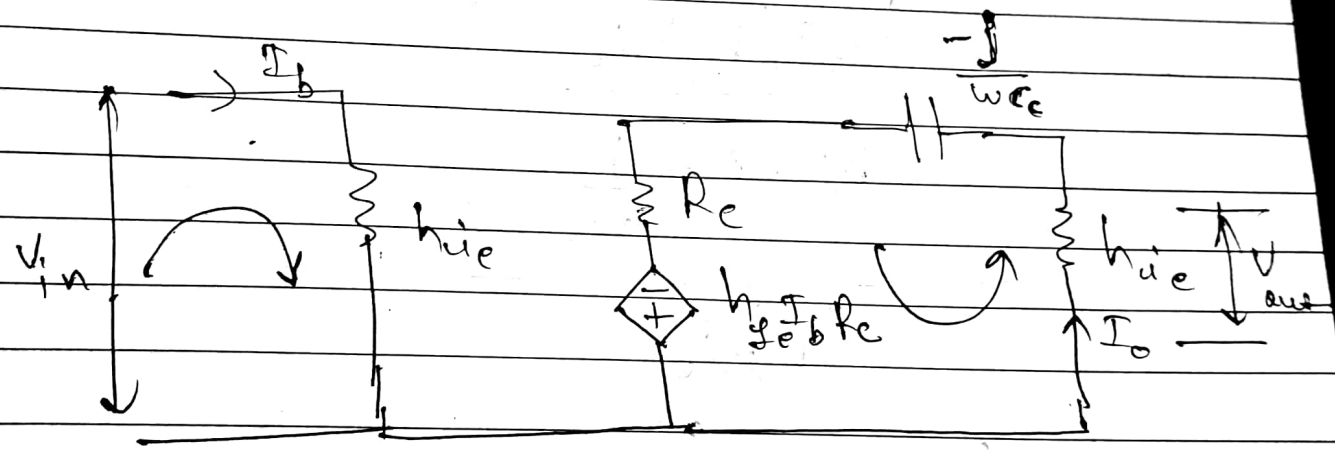 I_b
-j
ωC_c
R_c
V_in
h_ie
-
+
h_fe I_b R_c
h_ie
V_out
I_o